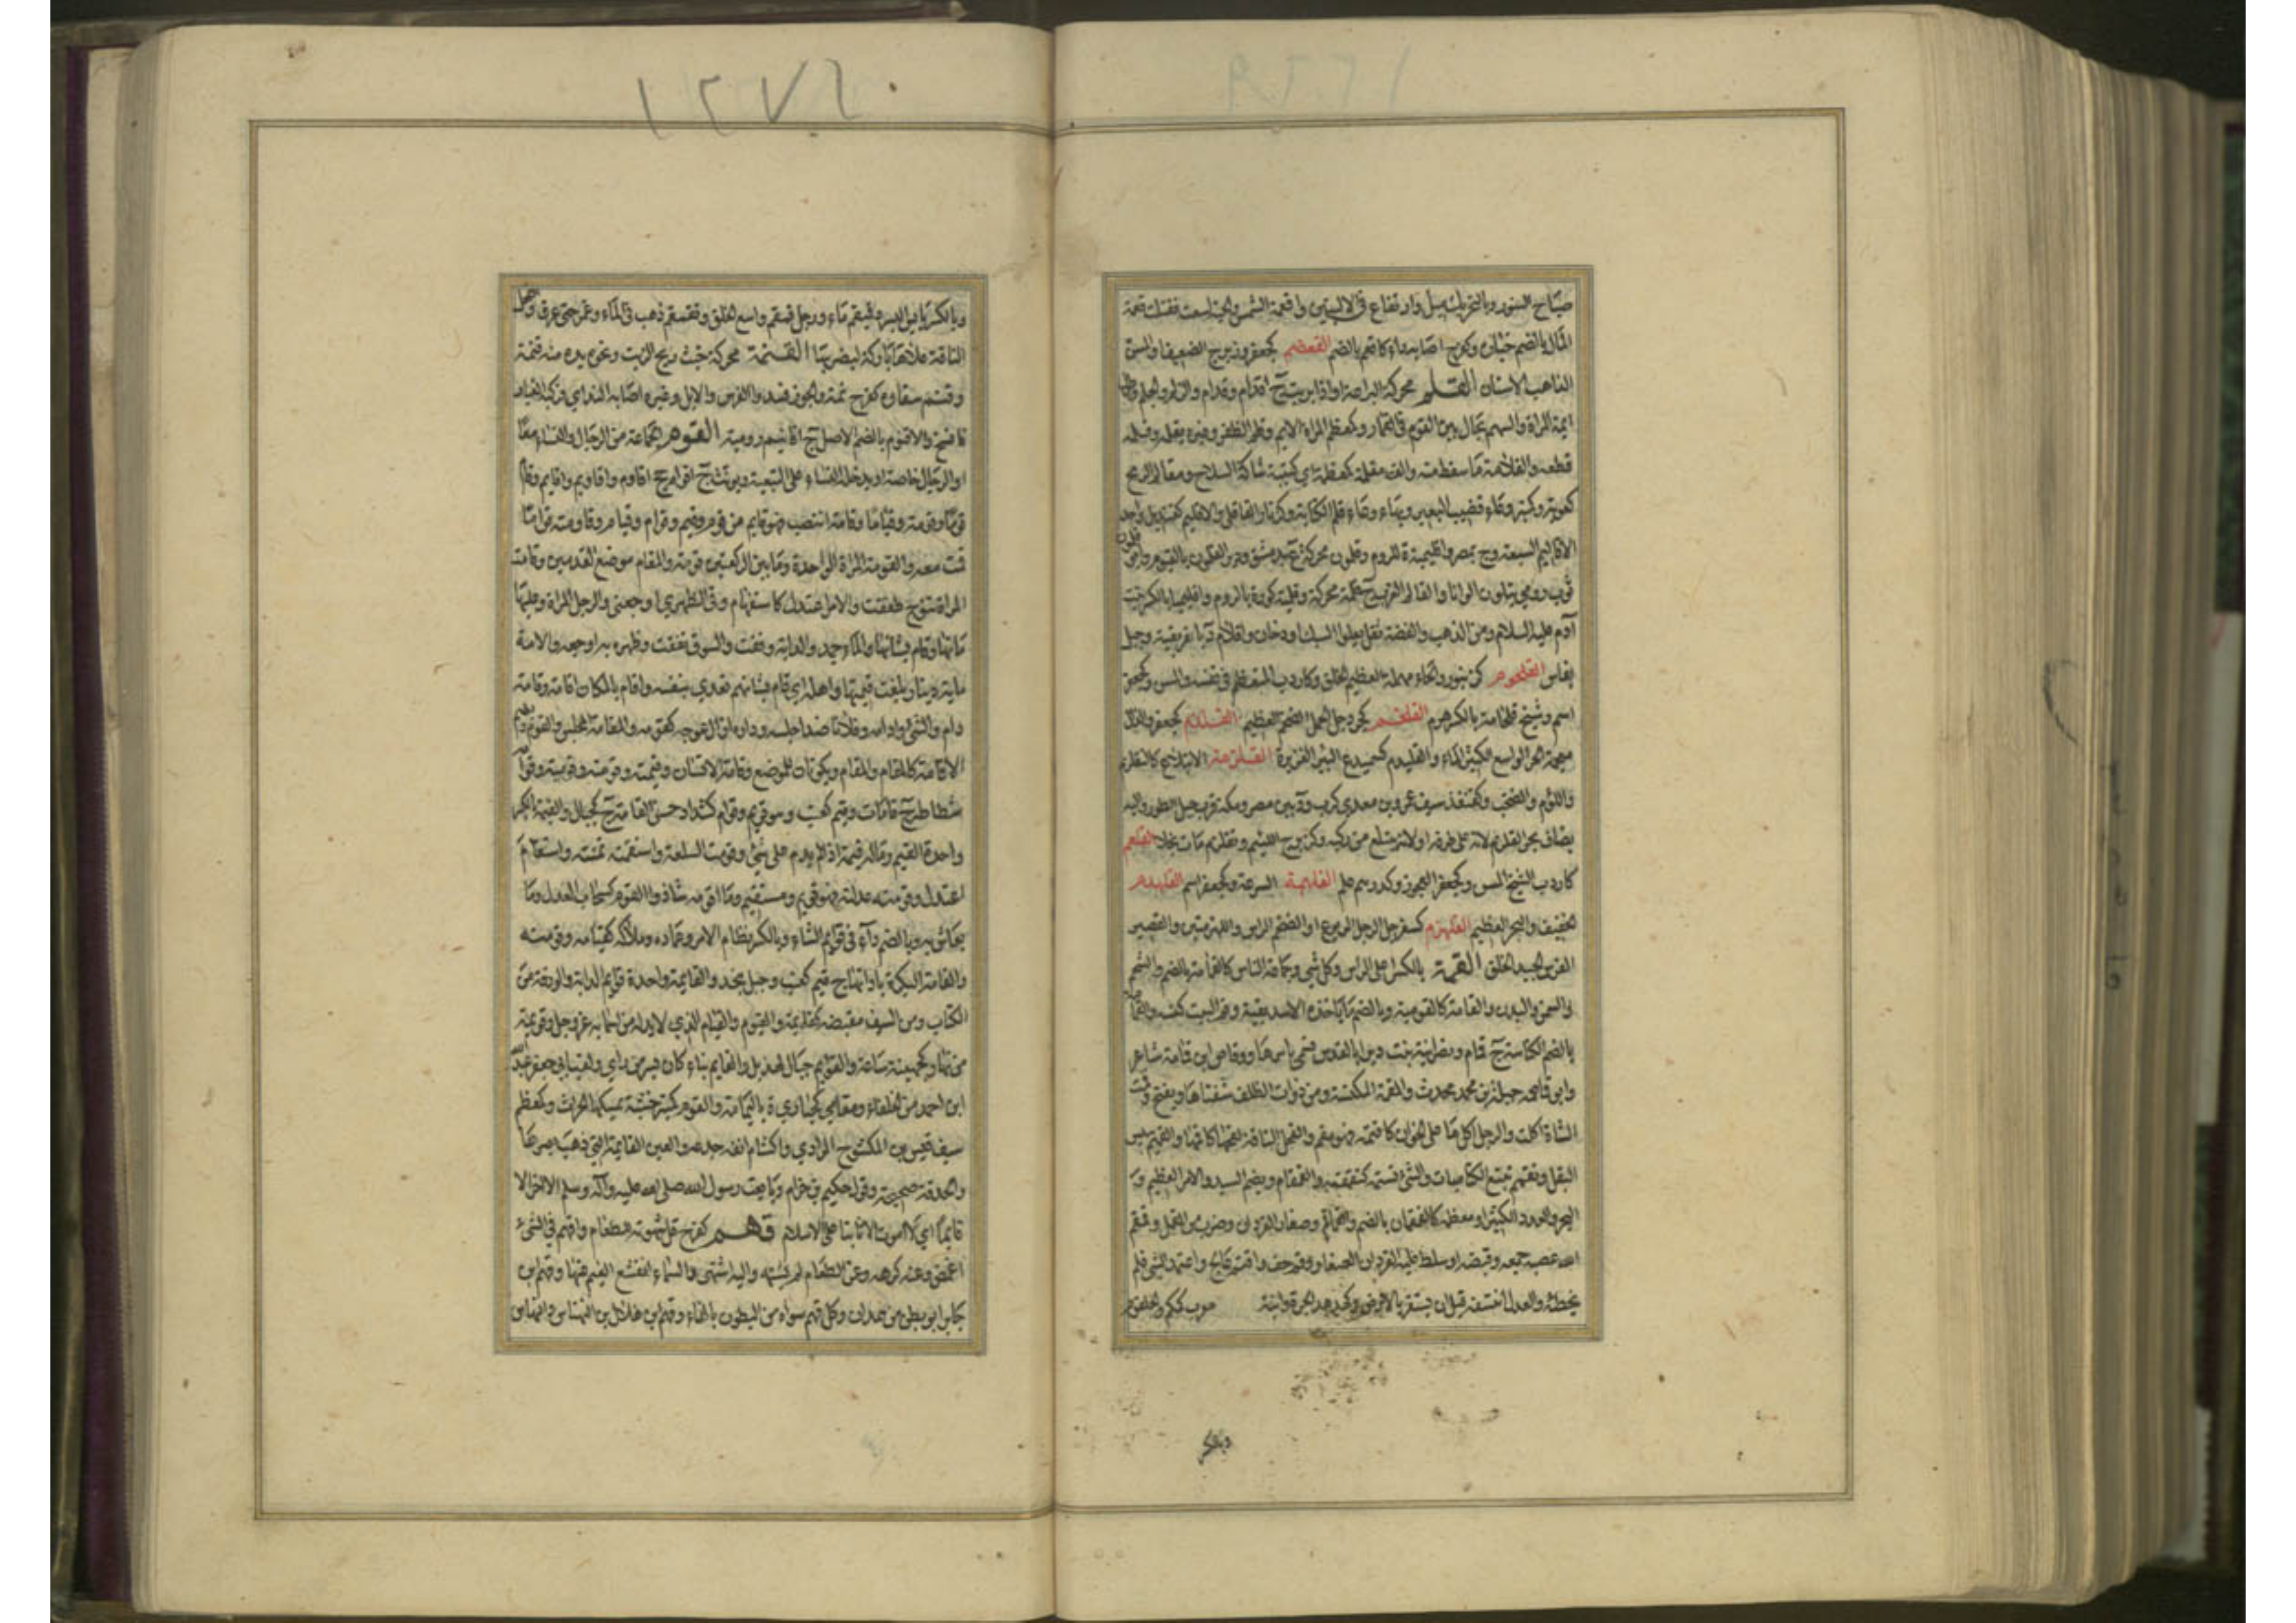 صياح السنور وبالتحريك ميل وارتفاع في الاليتين واقعمة الشمس والحية لسعت فقتلت وقعمة
المال بالضم خياره وكفرح اصابه داء كاقعم بالضم القعضم كجعفر وزبرج الضعيف او المسن
الذاهب الاسنان القلم محركة اليراعة او اذا بريت ج اقلام وقلام والزلم والجلم وطول
ايمة المراة والسهم يجال بين القوم في القمار وكمعظم المراة الايم وقلم الظفر وغيره يقلمه وقلمه
قطعه والقلامة ما سقط منه والف مقلمة كمعظمة اي كتيبة شاكة السلاح ومقالم الرمح
كعوبه وكمنبر وعاء قضيب البعير وبهاء وعاء قلم الكتابة وكزنار القاقلى والاقليم كقنديل واحد
الاقاليم السبعة وع بمصر واقليمية ة للروم وقلمون محركة ع بدمشق وابو قلمون
ثوب رومي يتلون الوانا والقالم العزب ج قلمة محركة وقلمية كورة بالروم واقليميا بالكسر بنت
آدم عليه السلام ومن الذهب والفضة ثقل يعلو السبك او دخان واقلام د بافريقية وجبل
بفاس القلحوم كزنبور والحاء مهملة العظيم الخلق وكاردب المتعظم في نفسه والمسن وكجعفر
اسم وشيخ قلحامة بالكسر هرم القلخم كجردحل الجمل الضخم العظيم القلذم كجعفر والذال
معجمة البحر الواسع الكثير الماء والقليذم كسميدع البئر الغزيرة القلزمة الابتلاع كالتقلزم
واللؤم والصخب وكقنفذ سيف عمرو بن معدي كرب ود بين مصر ومكة قرب جبل الطور واليه
يضاف بحر القلزم لانه على طرفه او لانه يبتلع من ركبه وكزبرج اللئيم وتقلزم مات بخلا القلعم
كاردب الشيخ المسن وكجعفر العجوز وكدرهم علم القلهمة السرعة وكجعفر اسم القلهذم
الخفيف والبحر العظيم القلهزم كسفرجل الرجل المربوع او الضخم الراس واللهزمتين والقصير
الفرس الجيد الخلق القمة بالكسر اعلى الراس وكل شيء وجماعة الناس كالقمامة بالضم والشحم
والسمن والبدن والقامة كالقومية وبالضم ما ياخذه الاسد بفيه وقم البيت كنسه والقمامة
بالضم الكناسة ج قمام ونصرانية بنت ديرا بالقدس فسمي باسمها ووقاص ابن قمامة شاعر
وابو قمامة جبلة بن محمد محدث والمقمة المكنسة ومن ذوات الظلف شفتاها ويفتح وقمت
الشاة اكلت والرجل اكل ما على الخوان كاقتمه فهو مقم والفحل الناقة لقحها كاقمها والقميم يبيس
البقل وتقمم تتبع الكناسات والشيء تسنمه كتقمقمه والقمقام ويضم السيد والامر العظيم و
البحر والعدد الكثير او معظمه كالقمقمان بالضم والقماقم وصغار القردان وضرب من القمل وقمقم
الله عصبه جمعه وقبضه او سلط عليه القردان الصغار وقم جف واقتم عالج واعتمد الشيء فلم
يخطئه والعدل انتسفه قبل ان يستقر بالارض وكهدهد الجرة وانية معرب كمكم والحلقوم
وبالكسر
وبالكسر يابس البسر وقميقم ماء ورجل قمقم واسع الخلق وتقمقم ذهب في الماء وغمر حتى غرق وفحل
الناقة علاها باركة ليضربها القنمة محركة خبث ريح الزيت ونحوه يده منه قنمة
وقنم سقاؤه كفرح تمه والجوز فسد والفرس والابل وغيره اصابه الندى فركبه الغبار
فاتسخ والاقنوم بالضم الاصل ج اقانيم رومية القوم الجماعة من الرجال والنساء معا
او الرجال خاصة او يدخله النساء على التبعية ويؤنث ج اقوام جج اقاوم واقاويم واقايم وقام
قوما وقومة وقياما وقامة انتصب فهو قايم من قوم وقيم وقوام وقيام وقاومته قواما
قمت معه والقومة المرة الواحدة وما بين الركعتين قومة والمقام موضع القدمين وقامت
المراة تنوح طفقت والامر اعتدل كاستقام وفي ظهري اوجعني والرجل المراة وعليها
مانها وقام بشانها والماء جمد والدابة وقفت والسوق نفقت وظهره به اوجعه والامة
ماية دينار بلغت قيمتها واهله اي قام بشانهم تعدى بنفسه واقام بالمكان اقامة وقامة
دام والشيء ادامه وفلانا ضد اجلسه ودرءه ازال عوجه كقومه والمقامة المجلس والقوم وبالضم
الاقامة كالمقام والمقام ويكونان للموضع وقامة الانسان وقيمته وقومته وقوميته وقوامه
شطاطه ج قامات وقيم كعنب وهو قويم وقوام كشداد حسن القامة ج كجبال والقيمة بالكسر
واحدة القيم وماله قيمة اذا لم يدم على شيء وقومت السلعة واستقمته ثمنته واستقام
اعتدل وقومته عدلته فهو قويم ومستقيم وما اقومه شاذ والقوام كسحاب العدل وما
يعاش به وبالضم داء في قوايم الشاء وبالكسر نظام الامر وعماده وملاكه كقيامه وقوميته
والقامة البكرة باداتها ج قيم كعنب وجبل بنجد والقايمة واحدة قوايم الدابة والورقة من
الكتاب ومن السيف مقبضه كقايمه والقيوم والقيام الذي لا بد له من اسمايه عز وجل وقويمة
من نهار كجهينة ساعة والقوايم جبال لهذيل والقايم بناء كان بسر من راى ولقب ابي جعفر عبد الله
ابن احمد من الخلفاء ومقامي كحبارى ة باليمامة والمقوم كمنبر خشبة يمسكها الحراث وكمعظم
سيف قيس بن المكشوح المرادي واكتشام انفه جدعه والعين القايمة التي ذهب بصرها
والحدقة صحيحة وقول حكيم بن حزام وبايعت رسول الله صلى الله عليه وآله وسلم الا اخر الا
قايما اي لا اموت الا ثابتا على الاسلام قهم كفرح قل شهوته للطعام واقهم في الشيء
اغمض وعنه كرهه وعن الطعام لم يشتهه واليه اشتهى والسماء انقشع الغيم عنها وقهم بن
جابر ابو بطن من همدان وكل قهم سواه من البطون بالفاء وقهم بن هلال بن النهاس والنهاس